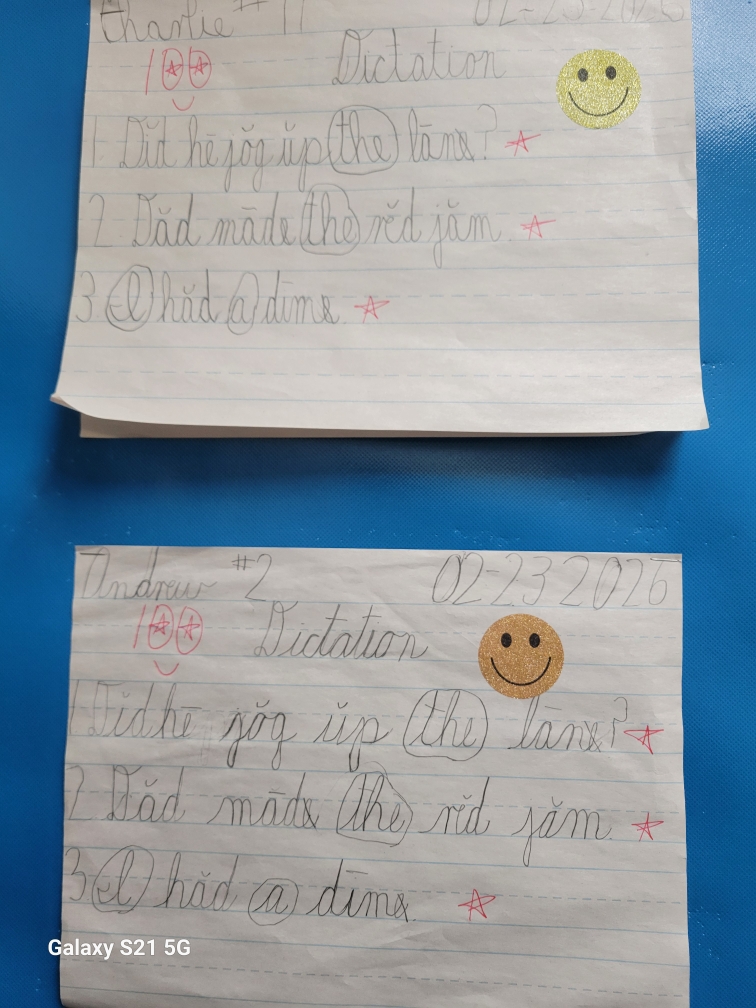 Charlie #11 02-23-2026
100 Dictation
1. Dĭd hē jŏg ŭp the lāne? ☆
2 Dăd māde the rĕd jăm ☆
3 I hăd a dīme. ☆
Andrew #2 02-23 2026
100 Dictation
1 Did hē jŏg ŭp the lāne? ☆
2 Dăd māde the rĕd jăm. ☆
3 I hăd a dīme. ☆
Galaxy S21 5G